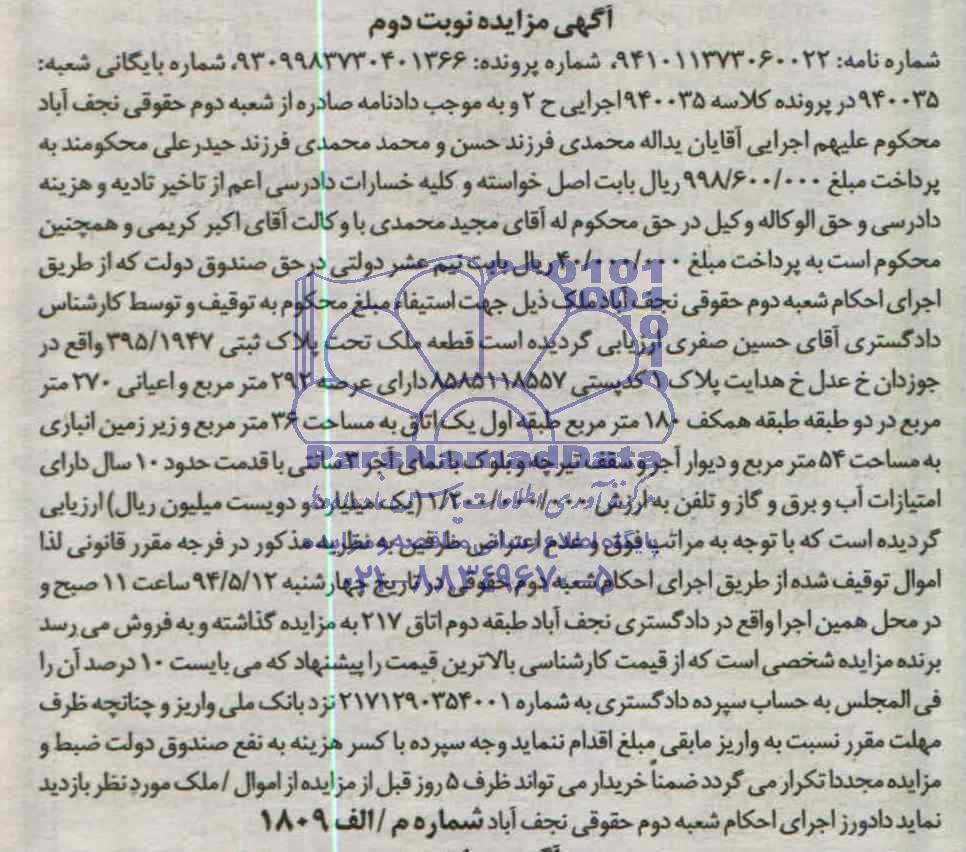 آگهی مزایده نوبت دوم
شماره نامه: ۹۴۱۰۱۱۳۷۳۰۶۰۰۲۲، شماره پرونده: ۹۳۰۹۹۸۳۷۳۰۴۰۱۳۶۶، شماره بایگانی شعبه:
۹۴۰۰۳۵ در پرونده کلاسه ۹۴۰۰۳۵ اجرایی ح ۲ و به موجب دادنامه صادره از شعبه دوم حقوقی نجف آباد
محکوم علیهم اجرایی آقایان یداله محمدی فرزند حسن و محمد محمدی فرزند حیدرعلی محکومند به
پرداخت مبلغ ۹۹۸/۶۰۰/۰۰۰ ریال بابت اصل خواسته و کلیه خسارات دادرسی اعم از تاخیر تادیه و هزینه
دادرسی و حق الوکاله وکیل در حق محکوم له آقای مجید محمدی با وکالت آقای اکبر کریمی و همچنین
محکوم است به پرداخت مبلغ ۴۰/۰۰۰/۰۰۰ ریال بابت نیم عشر دولتی در حق صندوق دولت که از طریق
اجرای احکام شعبه دوم حقوقی نجف آباد ملک ذیل جهت استیفاء مبلغ محکوم به توقیف و توسط کارشناس
دادگستری آقای حسین صفری ارزیابی گردیده است قطعه ملک تحت پلاک ثبتی ۳۹۵/۱۹۴۷ واقع در
جوزدان خ عدل خ هدایت پلاک ۱ کدپستی ۸۵۸۵۱۱۸۵۵۷ دارای عرصه ۲۹۲ متر مربع و اعیانی ۲۷۰ متر
مربع در دو طبقه طبقه همکف ۱۸۰ متر مربع طبقه اول یک اتاق به مساحت ۳۶ متر مربع و زیر زمین انباری
به مساحت ۵۴ متر مربع و دیوار آجر و سقف تیرچه و بلوک با نمای آجر ۳ سانتی با قدمت حدود ۱۰ سال دارای
امتیازات آب و برق و گاز و تلفن به ارزش ۱/۲۰۰/۰۰۰/۰۰۰ (یک میلیارد و دویست میلیون ریال) ارزیابی
گردیده است که با توجه به مراتب فوق و عدم اعتراض طرفین به نظریه مذکور در فرجه مقرر قانونی لذا
اموال توقیف شده از طریق اجرای احکام شعبه دوم حقوقی در تاریخ چهارشنبه ۹۴/۵/۱۲ ساعت ۱۱ صبح و
در محل همین اجرا واقع در دادگستری نجف آباد طبقه دوم اتاق ۲۱۷ به مزایده گذاشته و به فروش می رسد
برنده مزایده شخصی است که از قیمت کارشناسی بالاترین قیمت را پیشنهاد که می بایست ۱۰ درصد آن را
فی المجلس به حساب سپرده دادگستری به شماره ۲۱۷۱۲۹۰۳۵۴۰۰۱ نزد بانک ملی واریز و چنانچه ظرف
مهلت مقرر نسبت به واریز مابقی مبلغ اقدام ننماید وجه سپرده با کسر هزینه به نفع صندوق دولت ضبط و
مزایده مجددا تکرار می گردد ضمناً خریدار می تواند ظرف ۵ روز قبل از مزایده از اموال / ملک مورد نظر بازدید
نماید دادورز اجرای احکام شعبه دوم حقوقی نجف آباد شماره م / الف ۱۸۰۹
ParsNamadData
۰۲۱-۸۸۳۴۹۶۷۰-۵